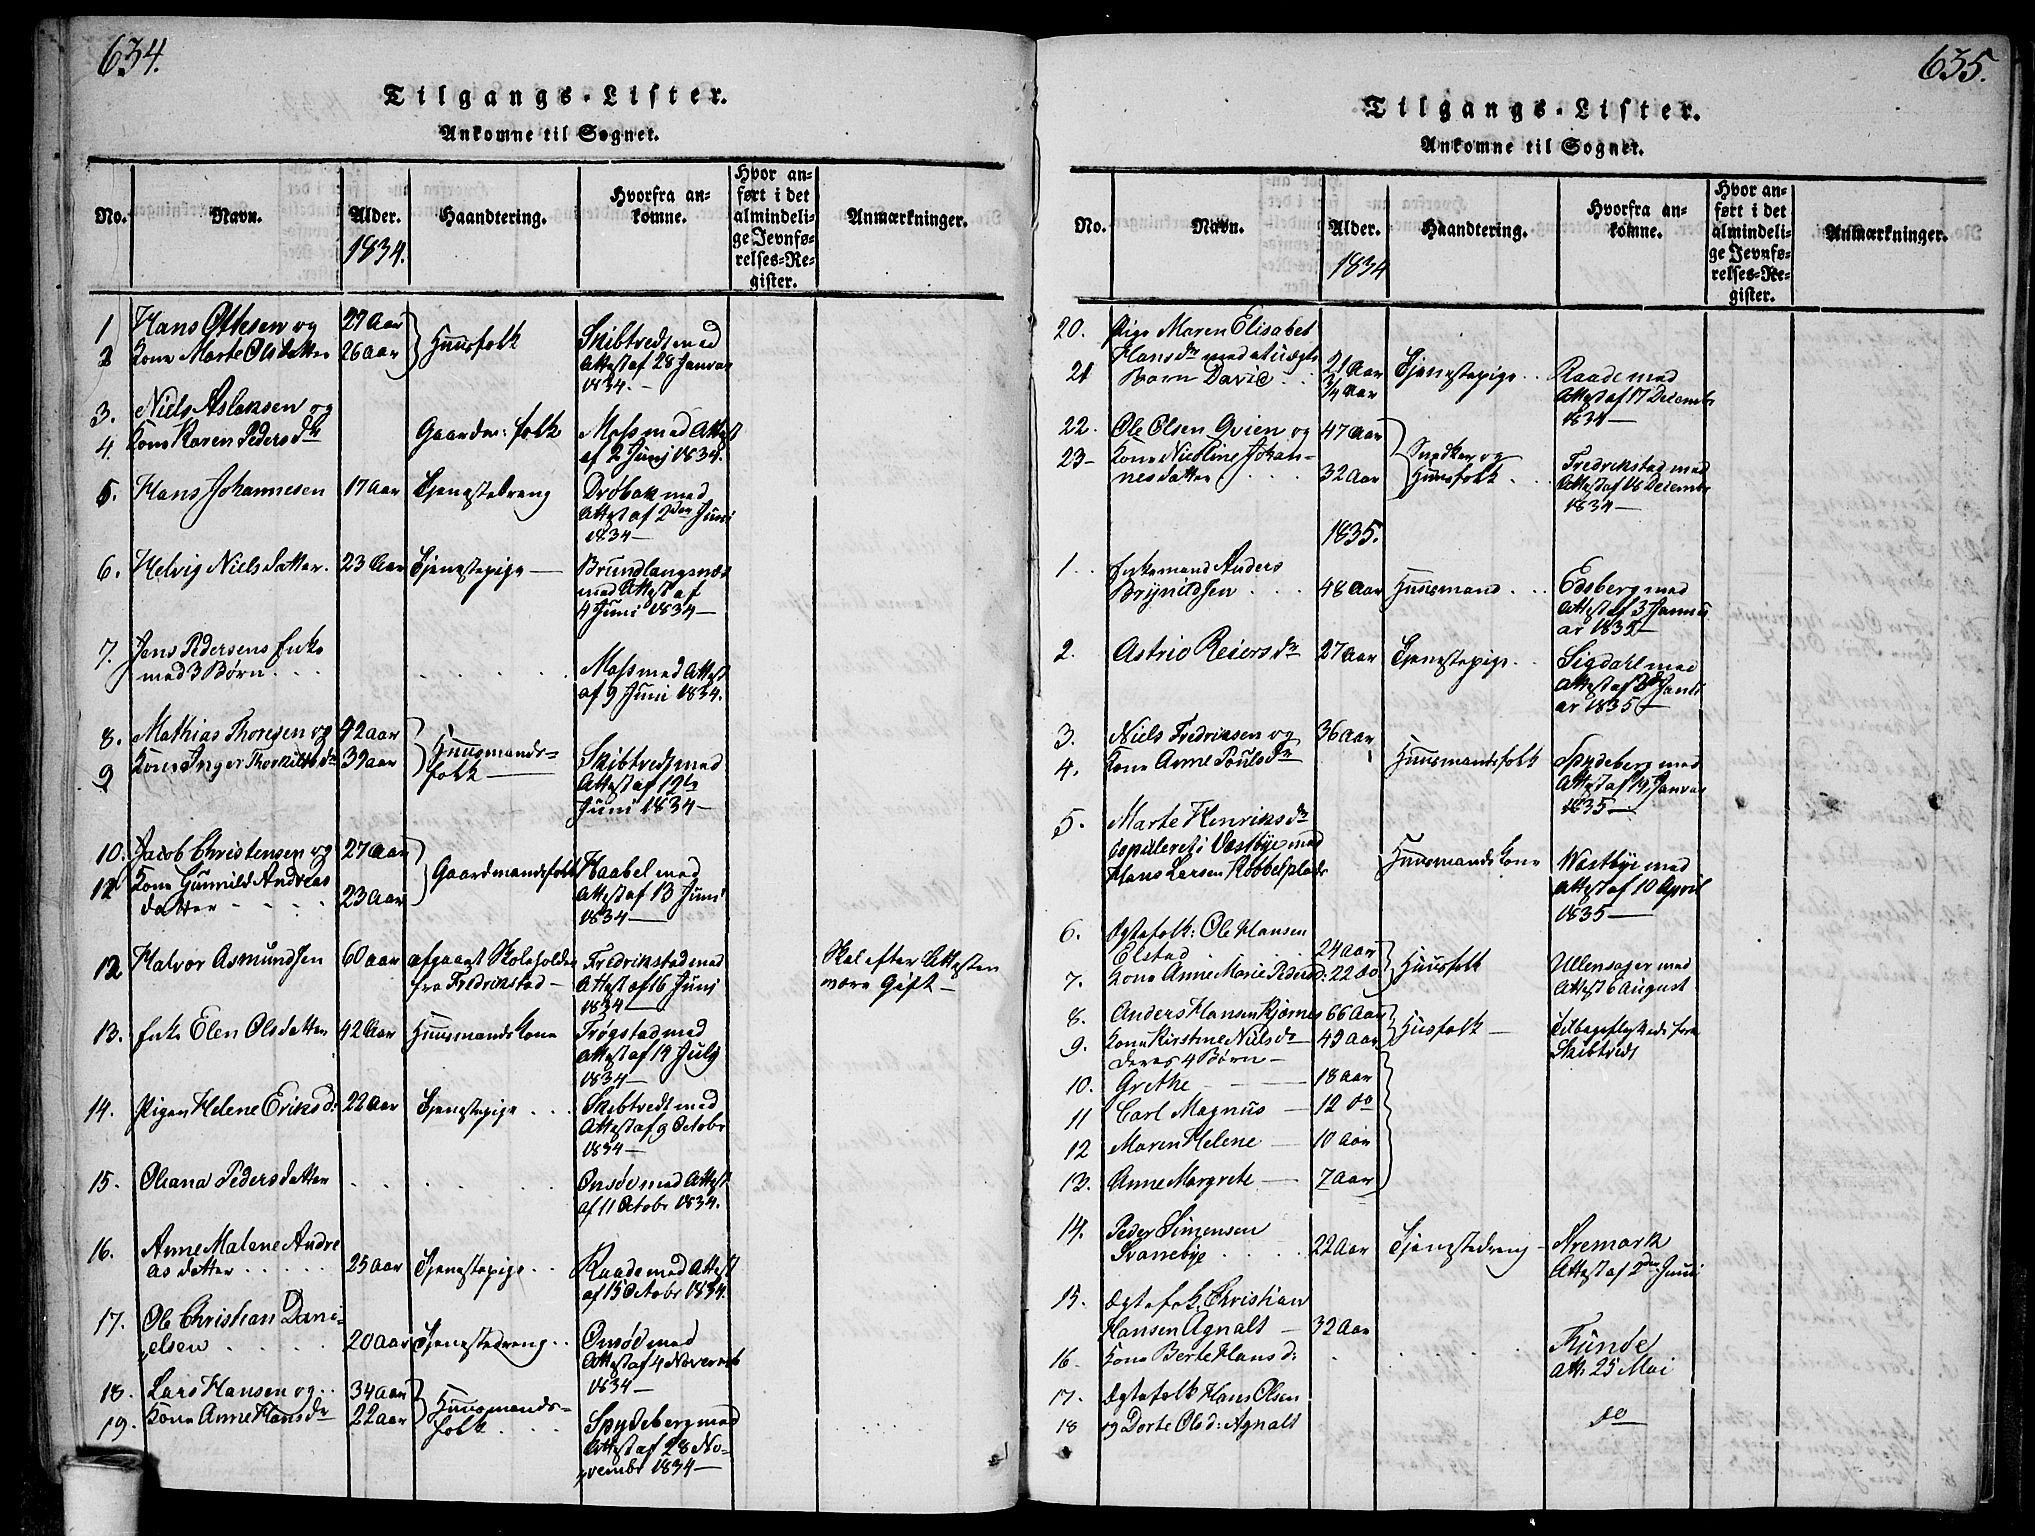 634.
Tilgangs-Lister.
Ankomne til Sognet.
No.
Navn.
Alder.
1834.
Haandtering.
Hvorfra an-
komne.
Hvor an-
ført i det
almindeli-
ge Jevnfø-
relses-Re-
gister.
Anmærkninger.
1 Hans Ottesen og 27 Aar Huusfolk Skibtvedt med
2 Kone Marte Olsdatter 26 Aar Attest af 28 Januar
1834.
3. Niels Aslaksen og
4. Kone Karen Pedersdtr Gaardm: folk Moss med Attest
af 2 Junj 1834.
5. Hans Johannesen 17 Aar Tjenestedreng Drøbak med
Attest af 2den Juni
1834
6. Helvig Nielsdatter. 23 Aar Tjenestepige
med Attest af
4 Juni 1834
7. Jens Pedersens Enke
med 3 Børn Moss med Attest
af 9 Juni 1834.
8. Mathias Thoresen og 42 Aar Huusmands-
9 Kone Inger Thorkildsdr 39 Aar folk Skibtvedt med
Attest af 12te
Juni 1834
10. Jacob Christensen og 27 Aar Gaardmandsfolk Haabel med
11 Kone Gunnild Andreas
datter 23 Aar Attest af 13 Junj
1834
12 Halvor Asmundsen 60 Aar afgaaet Skoleholder Fredrikstad med Skal efter Attesten
fra Fredrikstad Attest af 16 Junj være Gift
1834
13. Enke Elen Olsdatter 42 Aar Huusmandskone Trøgstad med
Attest af 14 July
1834
14. Pigen Helene Eriksd: 22 Aar Tjenestepige Skibtvedt med
Attest af 9 Octobr
1834
15. Oleana Pedersdatter Onsøe med Attest
af 11 Octobr 1834.
16. Anne Malene Andre
asdatter 25 Aar Tjenestepige Raade med Attest
af 15 Octobr 1834.
17. Ole Christian Dani-
elsen 20 Aar Tjenestedreng Onsøe med
Attest af 4 Novemb
1834
18. Lars Hansen og 34 Aar Huusmands-
19. Kone Anne Hansdr 22 Aar folk Spydeberg med
Attest af 28 No-
vembr 1834
635.
Tilgangs-Lister.
Ankomne til Sognet.
No.
Navn.
Alder.
1834
Haandtering.
Hvorfra an-
komne.
Hvor an-
ført i det
almindeli-
ge Jevnfø-
relses-Re-
gister.
Anmærkninger.
20. Pige Maren Elisabet
Hansdr med et uægte 21 Aar Tjenestepige Raade med
21 Barn David 3/4 Aar Attest af 17 Decembr
1834
22. Ole Olsen Qvien og 47 Aar Snedker og
23 Kone Nicoline Johan- Huusfolk Fredrikstad med
nesdatter 32 Aar Attest af 18 Decembr
1834
1835.
1. Enkemand Anders
Brynildsen 48 Aar Huusmand Edsberg med
Attest af 3 Janu
ar 1835
2. Astrid Reiersdr 27 Aar Tjenestepige Sigdahl med
Attest af Janu
ar 1835
3. Niels Fredriksen og 36 Aar
4. Kone Anne Poulsdr Huusmandsfolk Spydeberg med
Attest af 19 Januar
1835
5. Marte Henriksdr
copuleret i Vestbye med Huusmandskone Westbye med
Hans Larsen Kobbelplads Attest af 10 April
1835
6. Ægtefolk: Ole Hansen
Elstad 24 Aar Huusfolk Ullensager med
7. Kone Anne Marie Pedersd: 22 do Attest 6 August
8. Anders Hansen Kjærnes 66 Aar Husfolk Tilbageflyttede fra
9. Kone Kirstine Nielsdr 49 Aar Skibtvedt
deres 4 Børn
10. Grethe 18 Aar
11 Carl Magnus 12 do
12 Maren Helene 10 Aar
13. Anne Margrete 7 Aar
14. Peder Simensen
Svanebye 22 Aar Tjenestedreng Aremark
Attest af 2den Junii
15. Ægtefolk Christian
Hansen Agnalt 32 Aar
16. Kone Berte Hansd: Thunøe
Att: 25 Mai
17. Ægtefolk Hans Olsen
18 og Dorte Olsd: Agnalt do